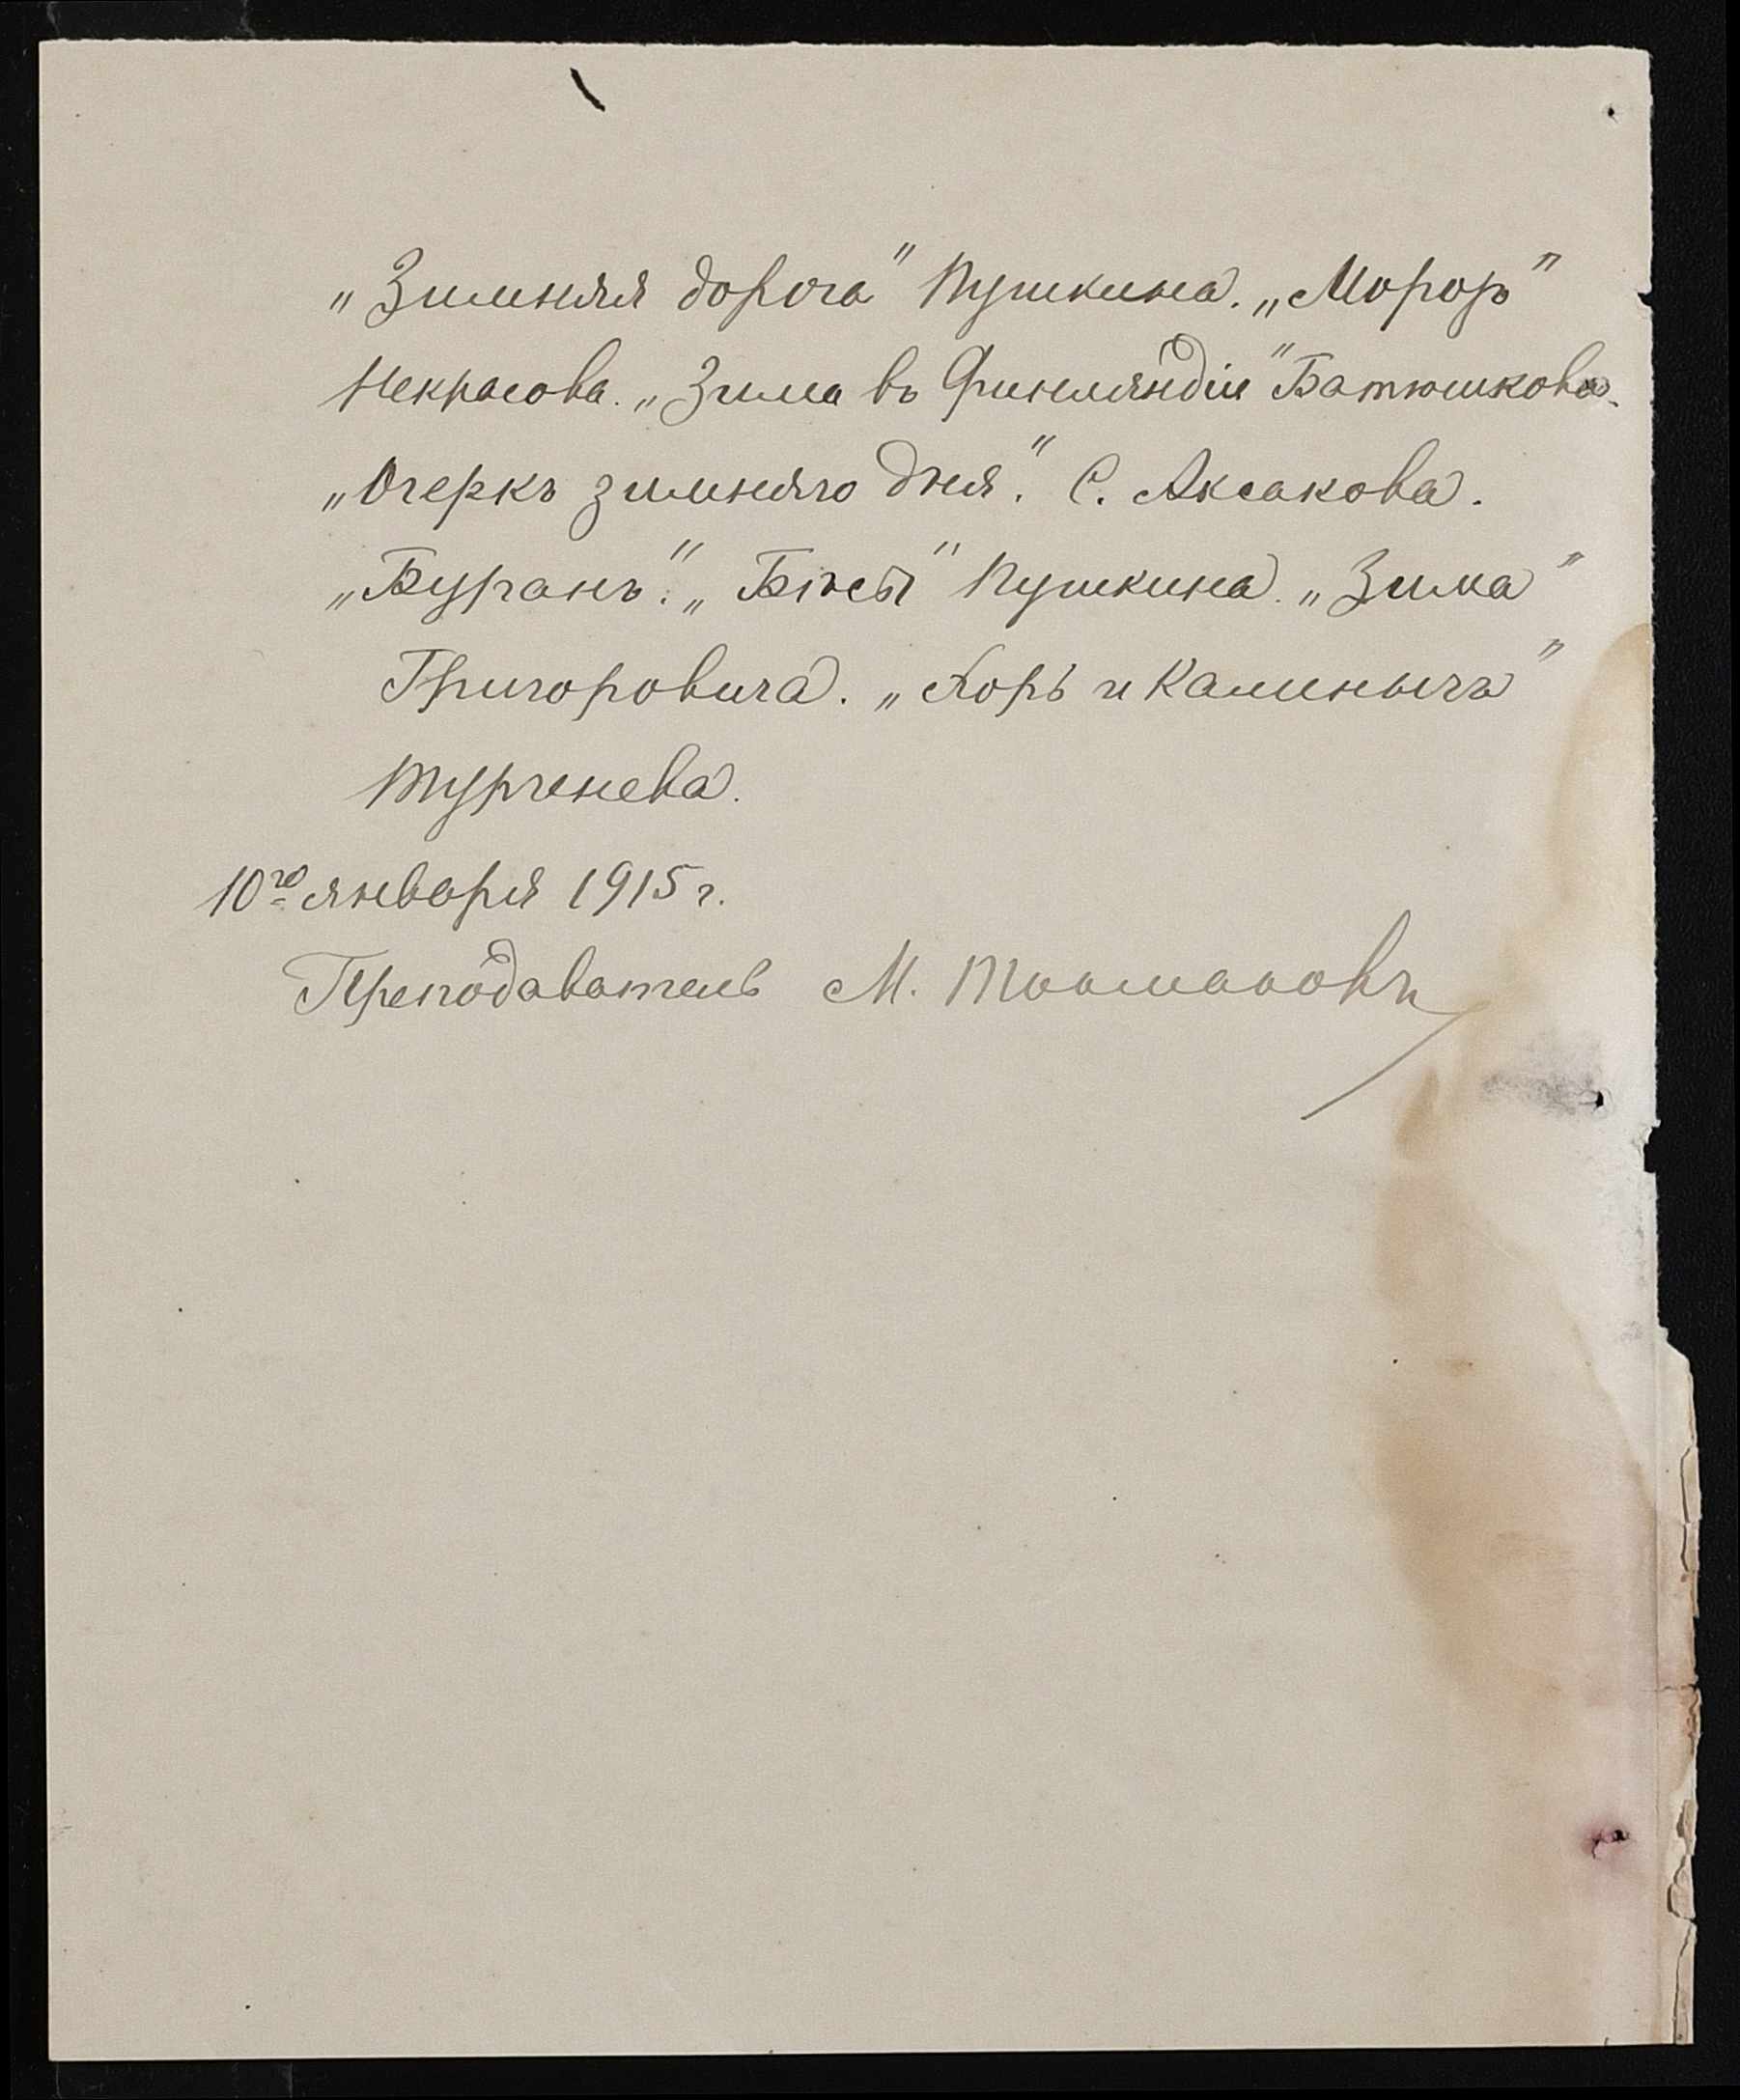 „Зимняя дорога" Пушкина. „Морозъ"
Некрасова. „Зима въ Финляндіи" Батюшкова.
„Очеркъ зимняго дня". С. Аксакова.
„Буранъ". „Бѣсы" Пушкина. „Зима"
Григоровича. „Хорь и Калинычъ"
Тургенева.
10го января 1915 г.
Преподаватель М.